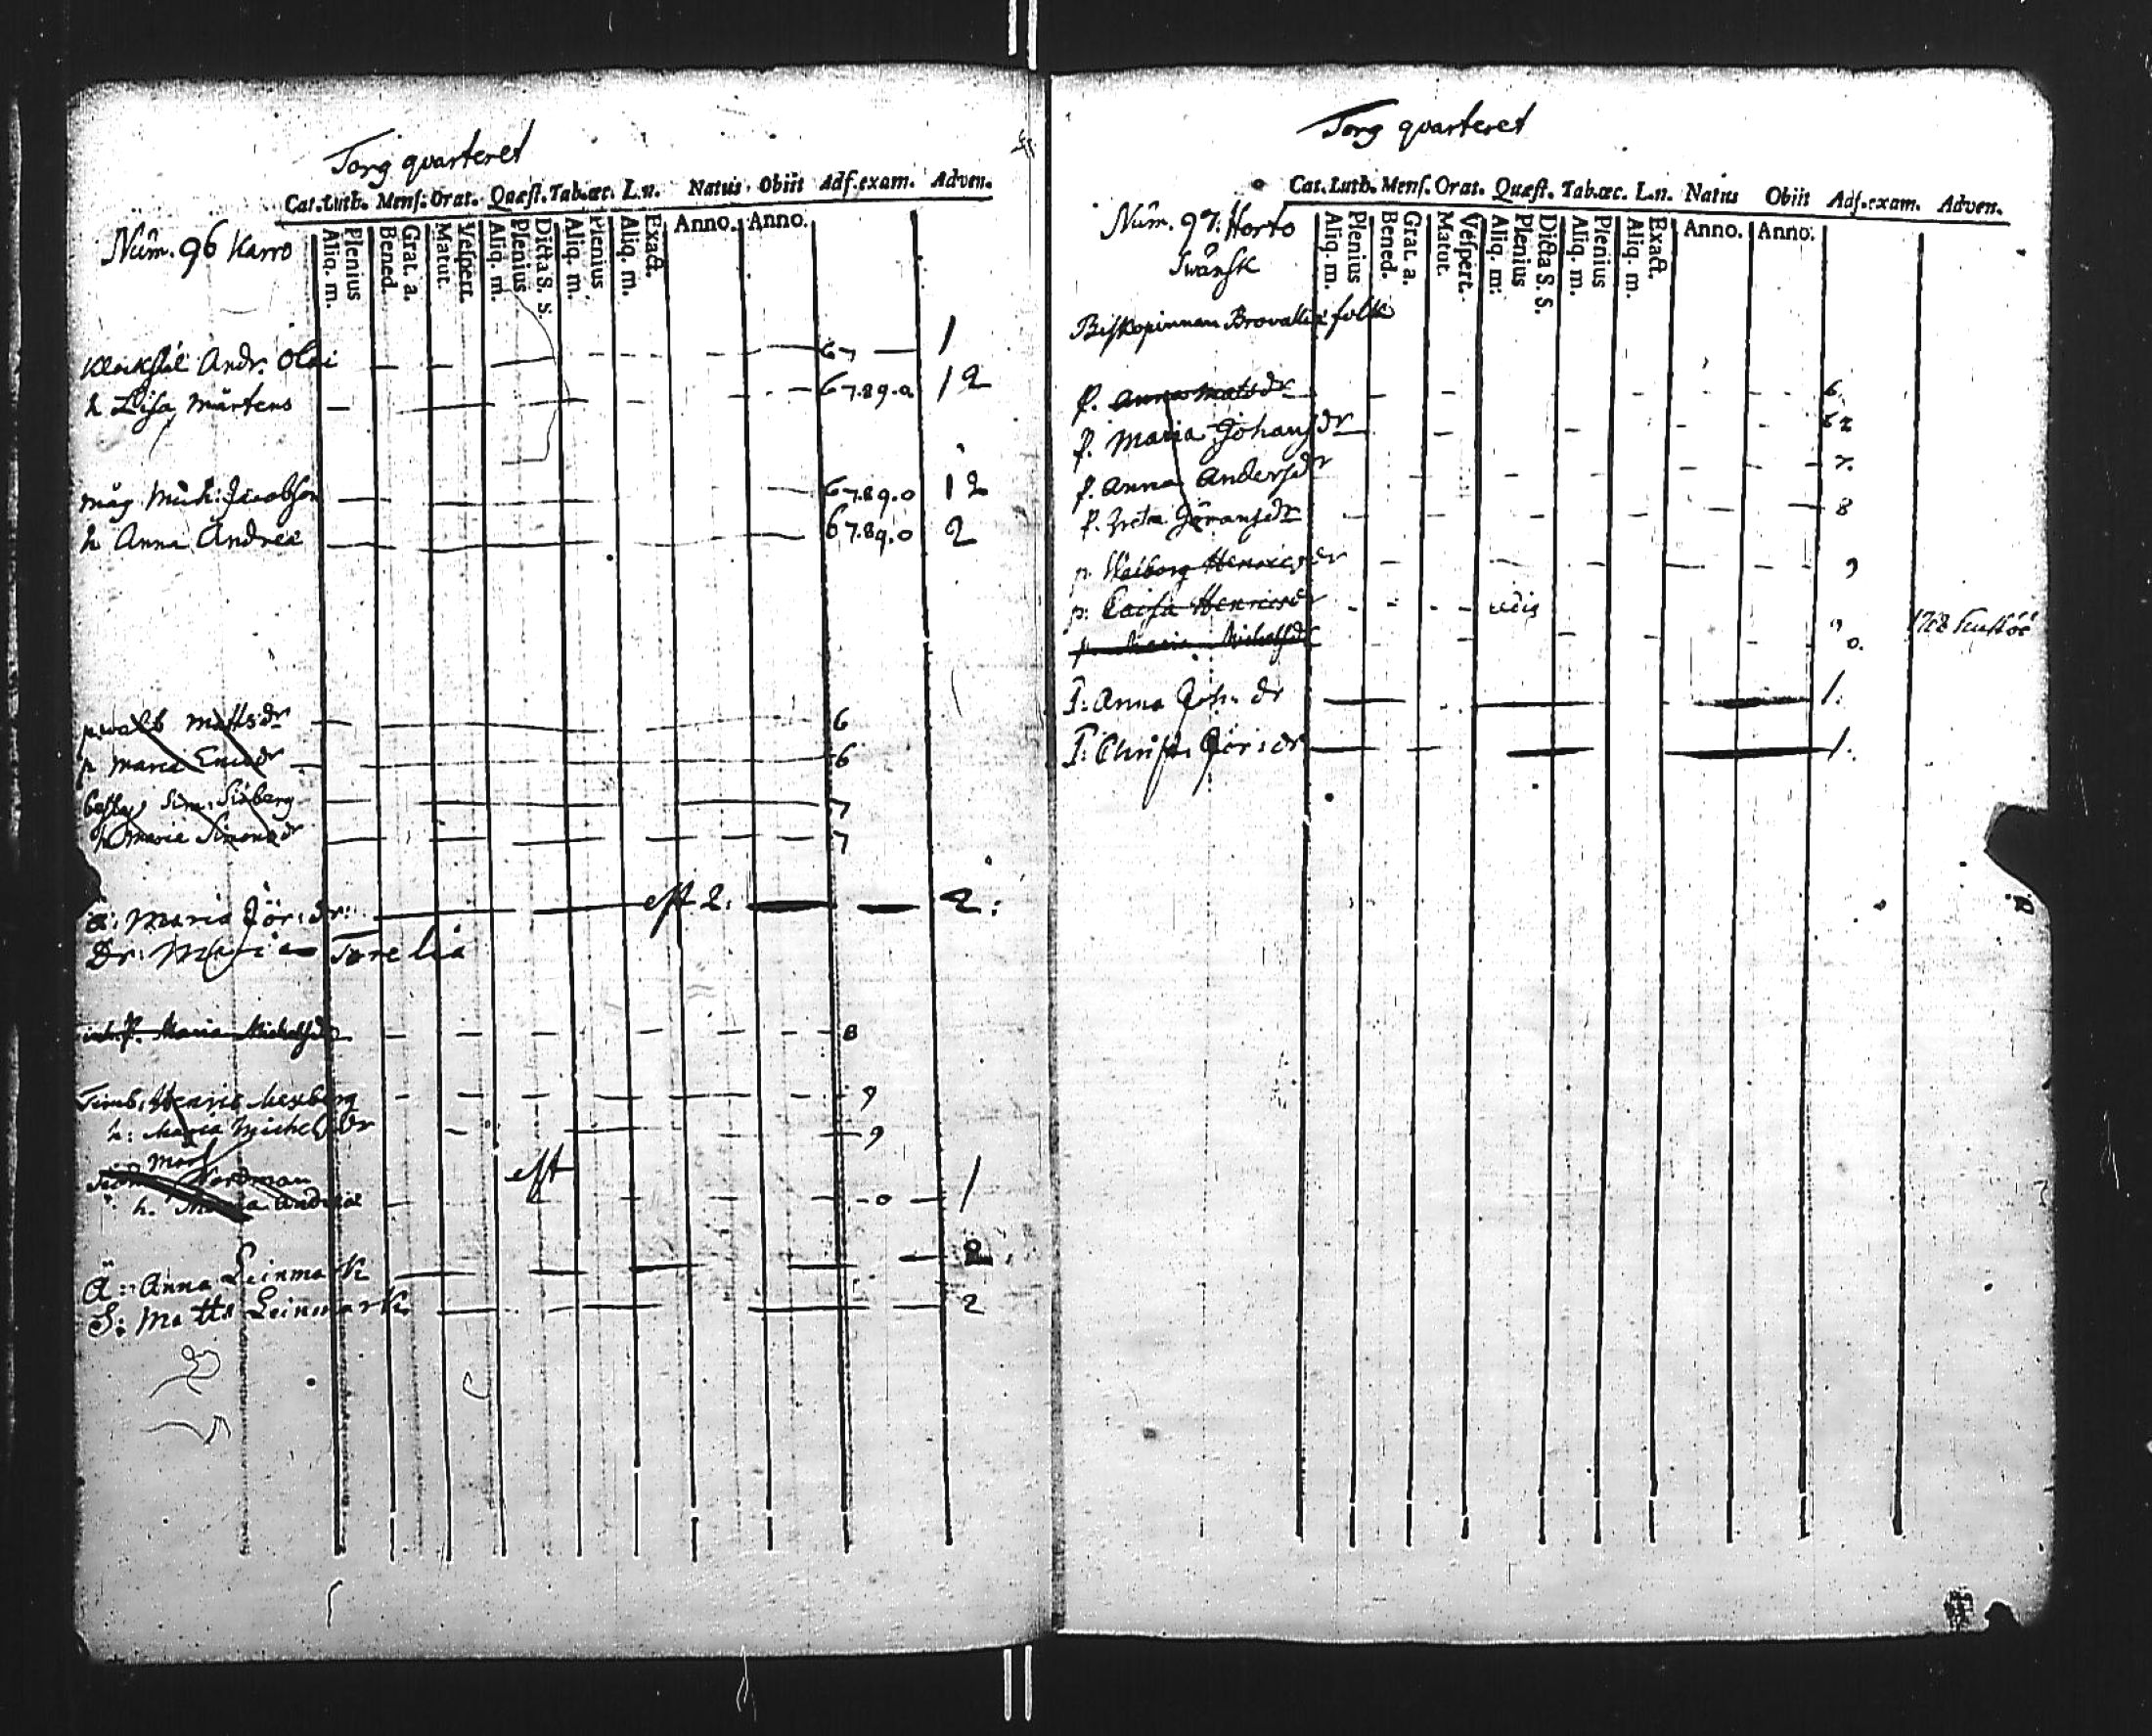 Torg qvarteret
Cat. Luth. Mens. Orat. Quæst. Tab. œc. L.n. Natus Obiit Adf. exam. Adven.
Num. 96 Karro
Aliq. m. Plenius Bened. Grat. a. Matut. Vespert. Aliq. m. Plenius Dicta S. S. Aliq. m. Plenius Aliq. m. Exact. Anno. Anno.
Andr. Olai 67 1
h Lisa Mårtens 6 7.8 9.0 1 2
måg Mich: Jacobson 6 7.8 9.0 1 2
h Anna Andreæ 6 7.8 9.0 2
p walb Mattsdr 6
p Maria 6
Sim: 7
h Maria Simonsdr 7
Maria Jör: dr: est 2. 2:
Dr: Maria
p. Maria Michelsdr 8
Henric 9
h: Maria Michelsdr 9
Nordman est
h. Maria Andreæ 0 1
Ä: Anna Leinmark 2.
S: Matts Leinmark 2
Torg qvarteret
Cat. Luth. Mens. Orat. Quæst. Tab. œc. L.n. Natus Obiit Adf. exam. Adven.
Num. 97. Horto
Swensk
Aliq. m. Plenius Bened. Grat. a. Matut. Vespert. Aliq. m. Plenius Dicta S. S. Aliq. m. Plenius Aliq. m. Exact. Anno. Anno.
Biskopinnan Brovallii folk
p. Anna Matsdr 6
p. Maria Johansdr
p. Anna Andersdr 7.
p. Greta Göransdr 8
p. Walborg Henricsdr 9
p: Caisa Henricsdr
p. Maria Michelsdr 0.
P: Anna Joh: dr 1.
P: Christ: Jör: dr 1.